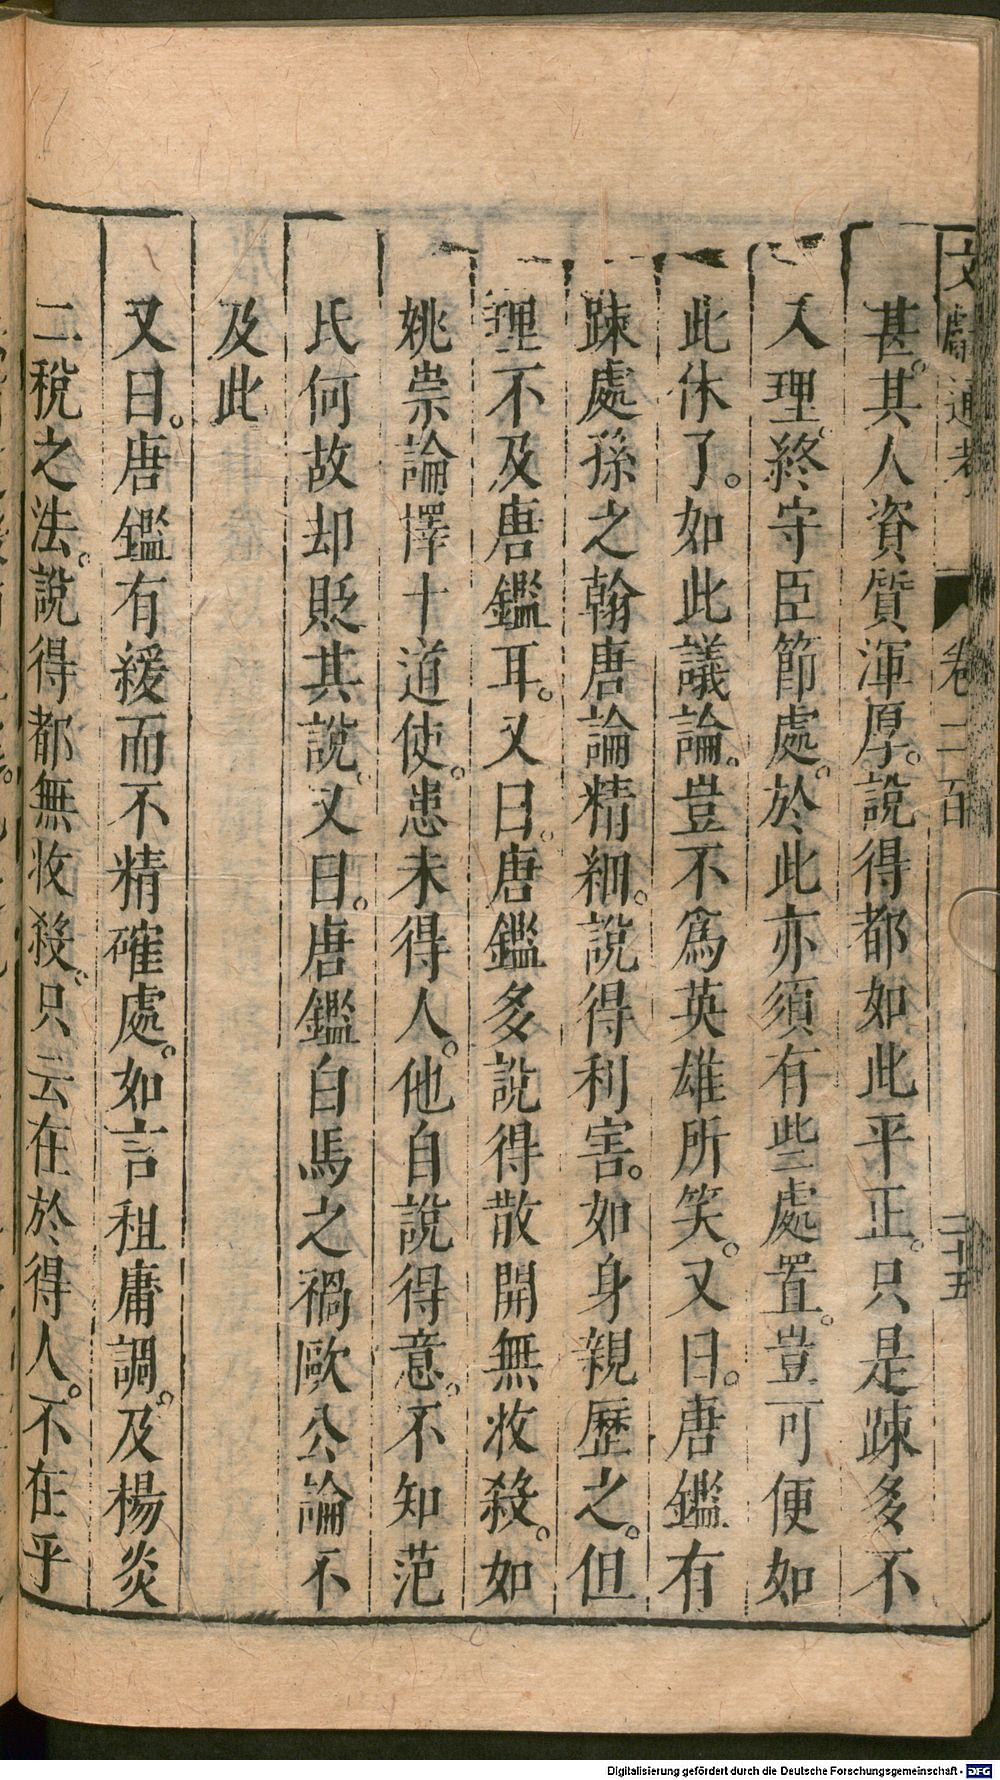 文獻通考 卷二百 二十五
甚。其人資質渾厚。說得都如此平正。只是踈多不
入理。終守臣節處。於此亦須有些處置。豈可便如
此休了。如此議論。豈不爲英雄所笑。又曰。唐鑑有
踈處孫之翰唐論精細。說得利害。如身親歷之。但
理不及唐鑑耳。又曰。唐鑑多說得散開無收殺。如
姚崇論擇十道使。患未得人。他自說得意。不知范
氏何故却貶其說。又曰。唐鑑白馬之禍歐公論不
及此
又曰。唐鑑有緩而不精確處。如言租庸調。及楊炎
二稅之法。說得都無收殺。只云在於得人。不在乎
Digitalisierung gefördert durch die Deutsche Forschungsgemeinschaft - DFG